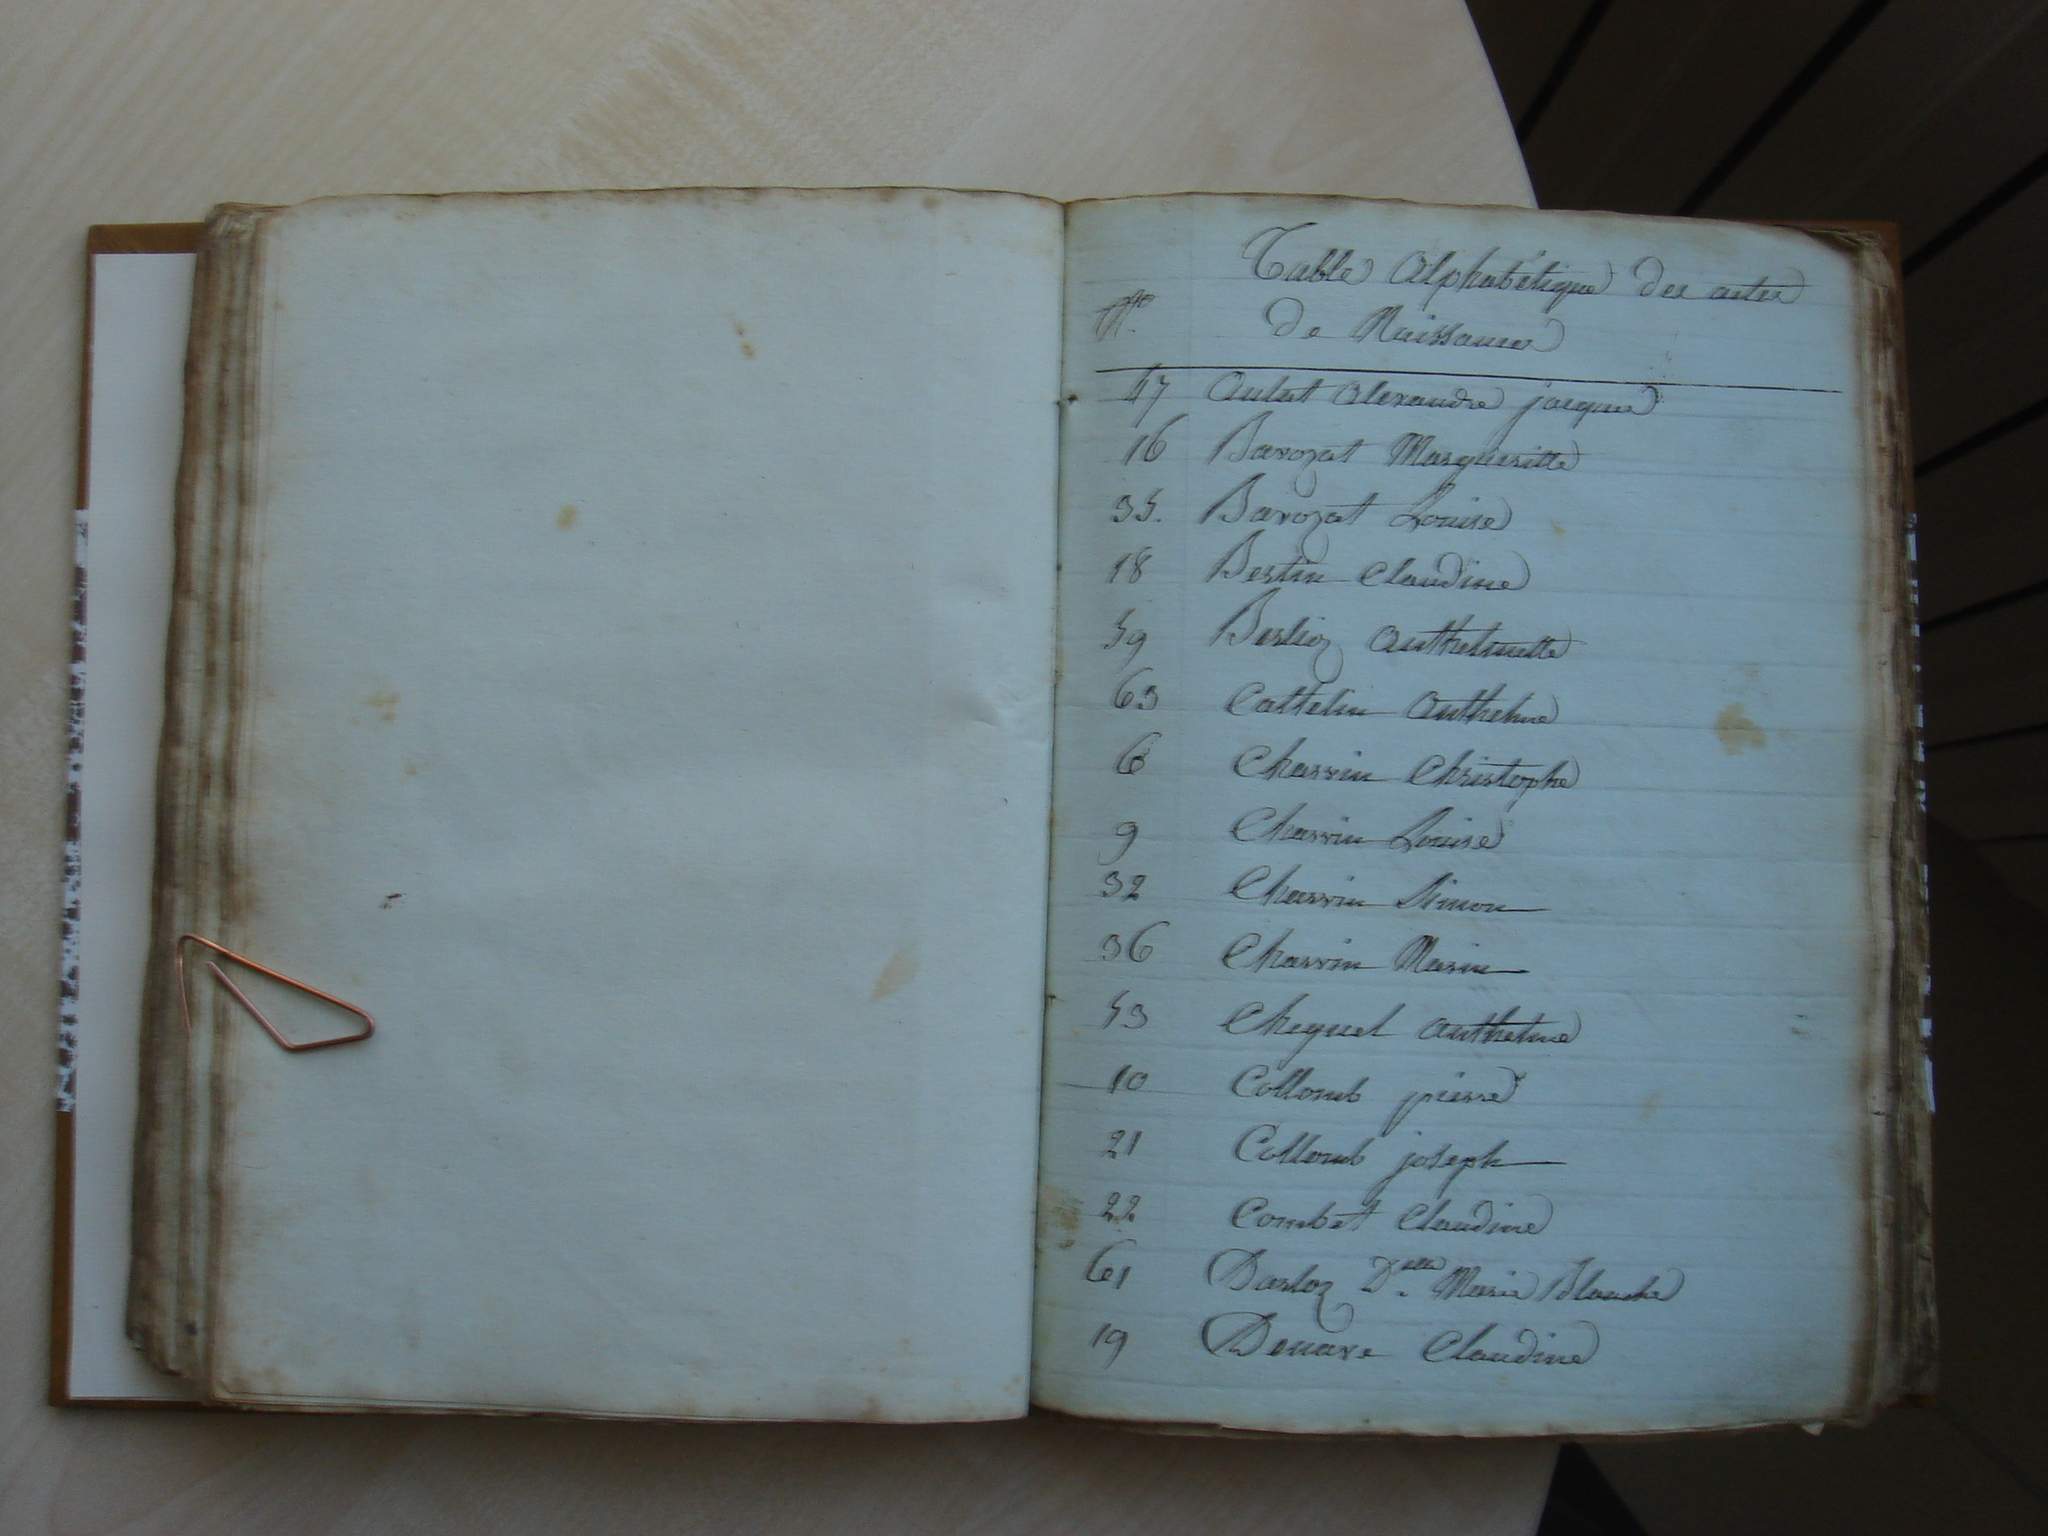 Table Alphabétique des actes
Nº. de Naissances
47 Aulat Alexandre jacques
16 Bavozat Margueritte
35. Bavozat Louise
18 Bertin Claudine
59 Berlioz Anthelmette
63 Cattelin Anthelme
6 Charvin Christophe
9 Charvin Louise
32 Charvin Simon
36 Charvin Marin
53 Chequel Anthelme
10 Collomb pierre
21 Collomb joseph
22 Combet Claudine
61 Darloz Dlle. Marie Blanche
19 Douare Claudine